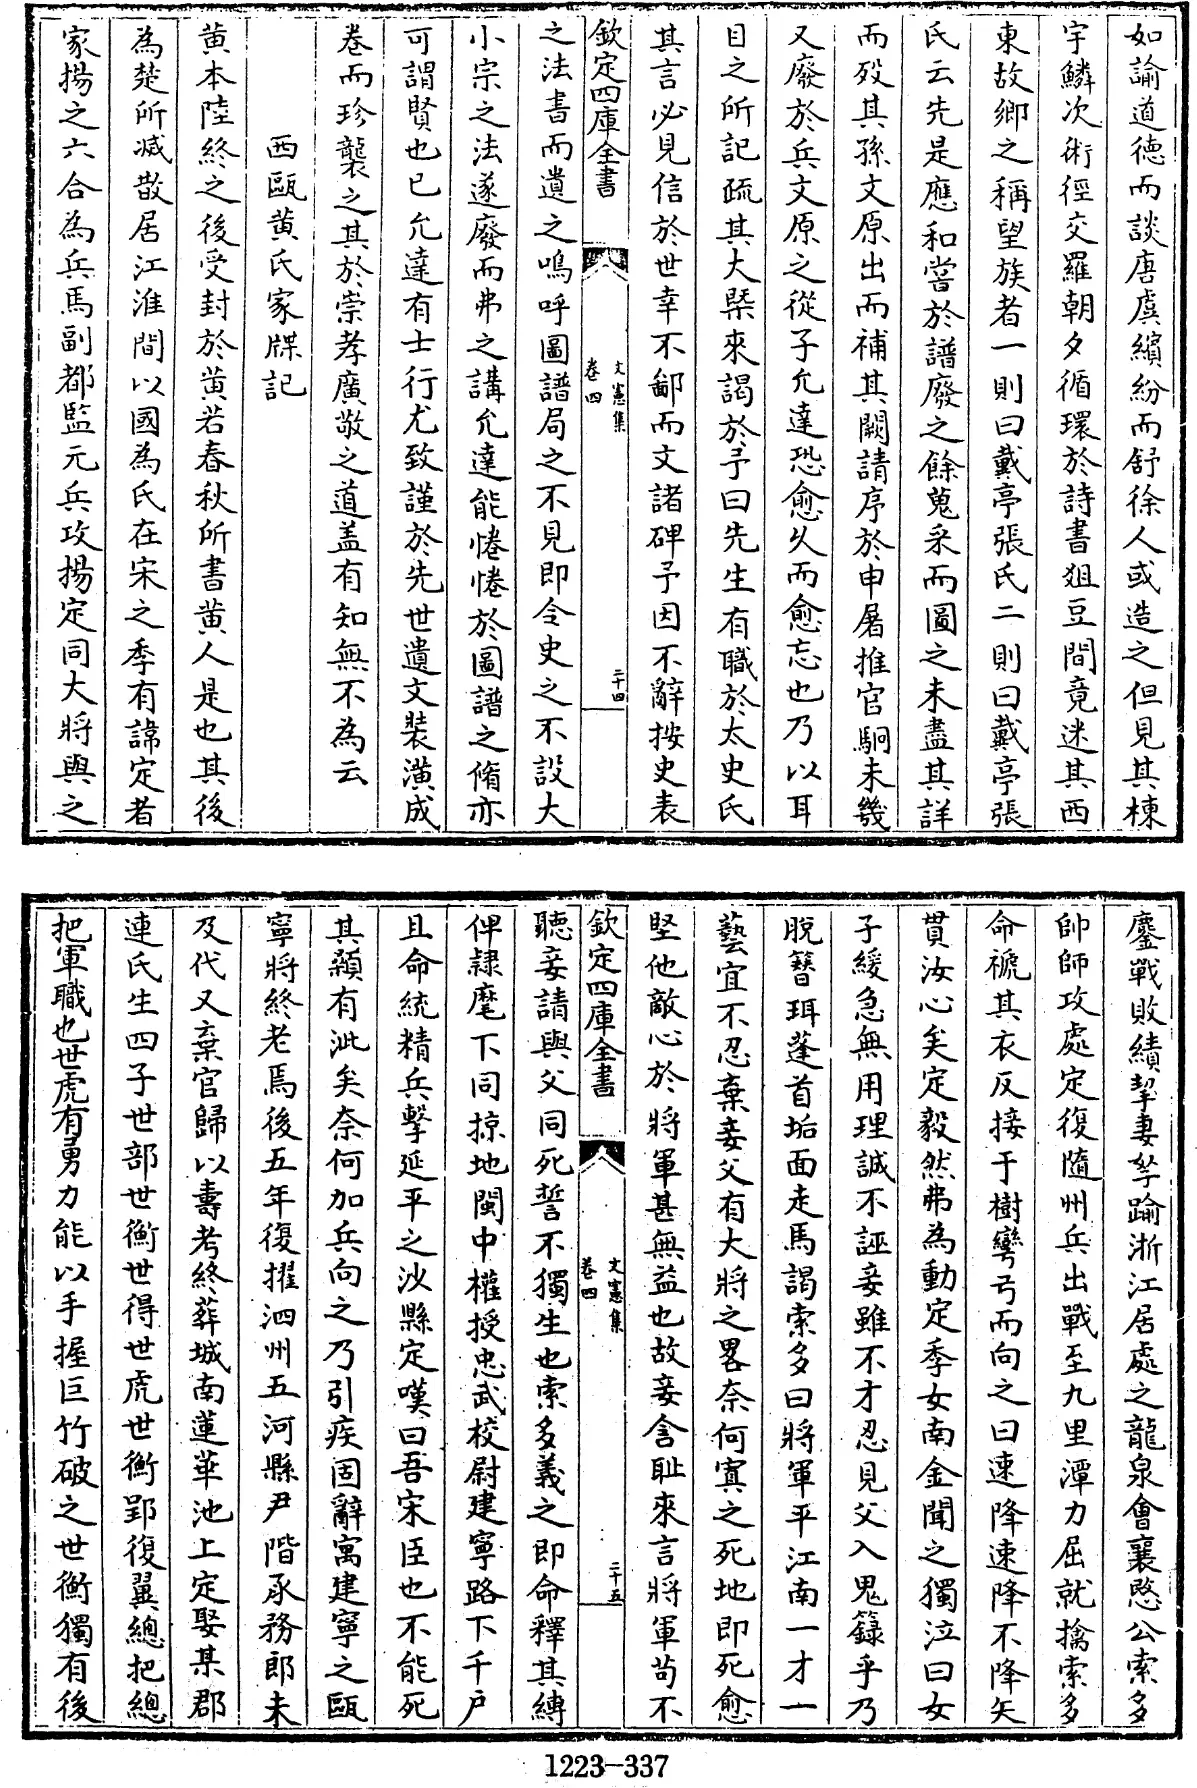 如諭道德而談唐虞繽紛而舒徐人或造之但見其棟
宇鱗次術徑交羅朝夕循環於詩書俎豆間竟迷其西
東故鄉之稱望族者一則曰戴亭張氏二則曰戴亭張
氏云先是應和嘗於譜廢之餘蒐采而圖之未盡其詳
而歿其孫文原出而補其闕請序於申屠推官駉未幾
又廢於兵文原之從子允達恐愈久而愈忘也乃以耳
目之所記疏其大槩來謁於予曰先生有職於太史氏
其言必見信於世幸不鄙而文諸碑予因不辭按史表
欽定四庫全書
文憲集
卷四
二十四
之法書而遺之嗚呼圖譜局之不見即令史之不設大
小宗之法遂廢而弗之講允達能惓惓於圖譜之脩亦
可謂賢也已允達有士行尤致謹於先世遺文裝潢成
卷而珍襲之其於崇孝廣敬之道盖有知無不為云
西甌黄氏家牒記
黄本陸終之後受封於黄若春秋所書黄人是也其後
為楚所滅散居江淮間以國為氏在宋之季有諱定者
家揚之六合為兵馬副都監元兵攻揚定同大將與之
鏖戰敗績挈妻孥踰浙江居處之龍泉會襄愍公索多
帥師攻處定復隨州兵出戰至九里潭力屈就擒索多
命褫其衣反接于樹彎弓而向之曰速降速降不降矢
貫汝心矣定毅然弗為動定季女南金聞之獨泣曰女
子緩急無用理誠不誣妾雖不才忍見父入鬼籙乎乃
脫簪珥蓬首垢面走馬謁索多曰將軍平江南一才一
藝宜不忍棄妾父有大將之畧奈何寘之死地即死愈
堅他敵心於將軍甚無益也故妾含耻來言將軍苟不
欽定四庫全書
文憲集
卷四
二十五
聽妾請與父同死誓不獨生也索多義之即命釋其縛
俾隷麾下同掠地閩中權授忠武校尉建寧路下千戶
且命統精兵擊延平之沙縣定嘆曰吾宋臣也不能死
其顙有泚矣奈何加兵向之乃引疾固辭寓建寧之甌
寧將終老焉後五年復擢泗州五河縣尹階承務郎未
及代又棄官歸以壽考終葬城南蓮華池上定娶某郡
連氏生四子世部世衡世得世虎世衡郢復翼總把總
把軍職也世虎有勇力能以手握巨竹破之世衡獨有後
1223—337